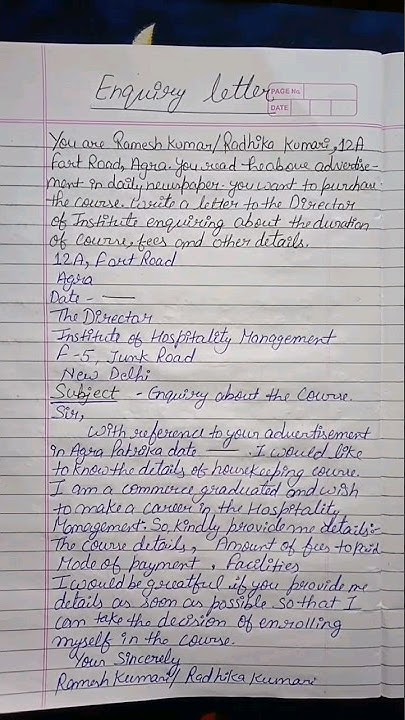 Enquiry letter
PAGE No
DATE
You are Ramesh Kumar/Radhika Kumari, 12A
Fort Road, Agra. You read the above advertise-
ment in daily newspaper. you want to purchase
the course. Write a letter to the Director
of Institute enquiring about the duration
of course, fees and other details.
12A, Fort Road
Agra
Date -
The Director
Institute of Hospitality Management
F-5, Junk Road
New Delhi
Subject - Enquiry about the Course.
Sir,
With reference to your advertisement
in Agra Patrika date . I would like
to know the details of housekeeping course.
I am a commerce graduated and wish
to make a career in the Hospitality
Management. So kindly provide me details:-
The Course details, Amount of fees to paid
Mode of payment, Facilities
I would be greatful if you provide me
details as soon as possible so that I
can take the decision of enrolling
myself in the course.
Your Sincerely
Ramesh Kumari/ Radhika Kumari